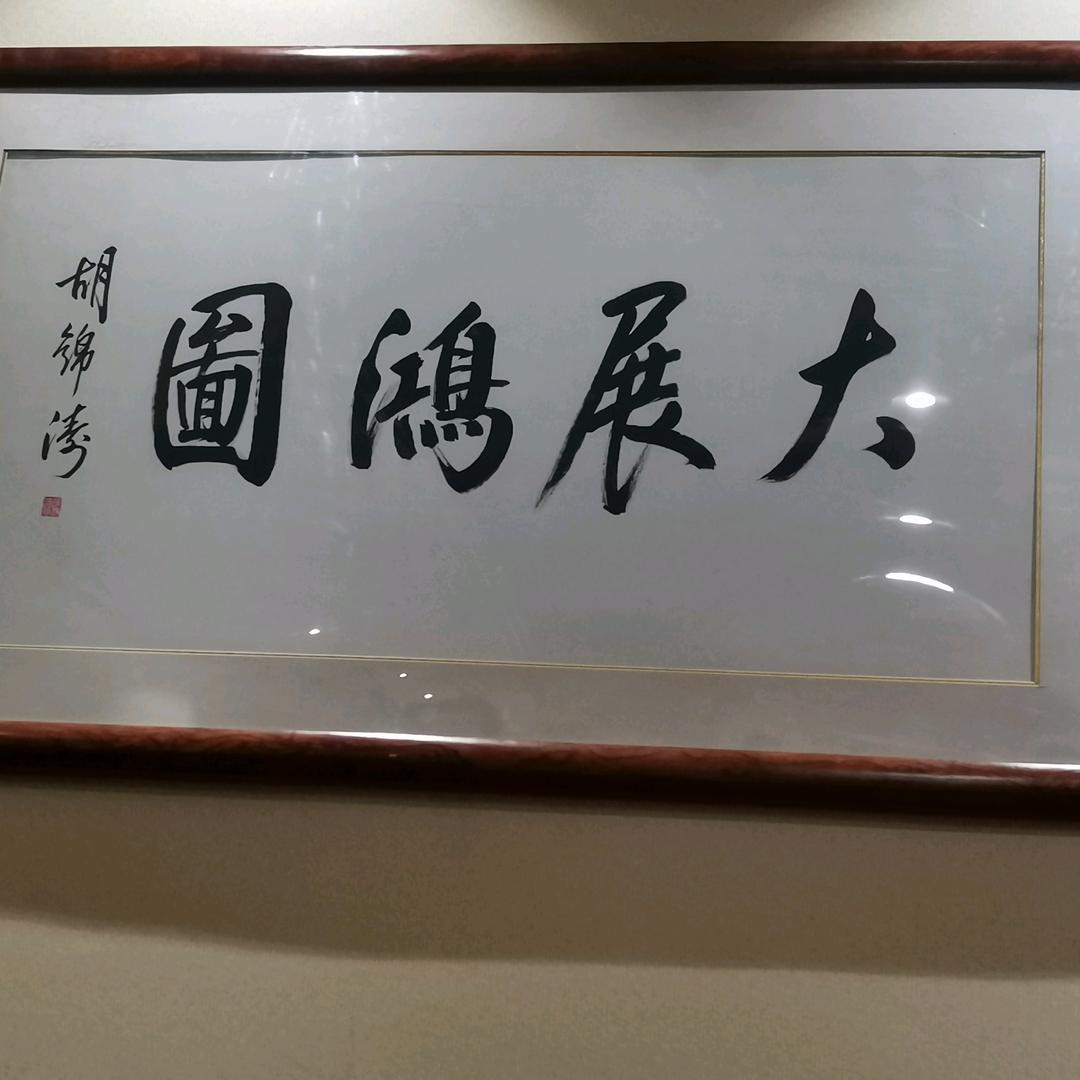 大展鴻圖
胡錦濤